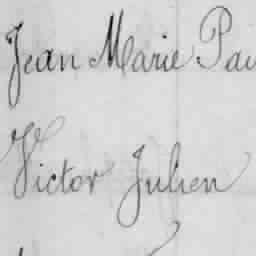 Jean Marie Pau
Victor Julien